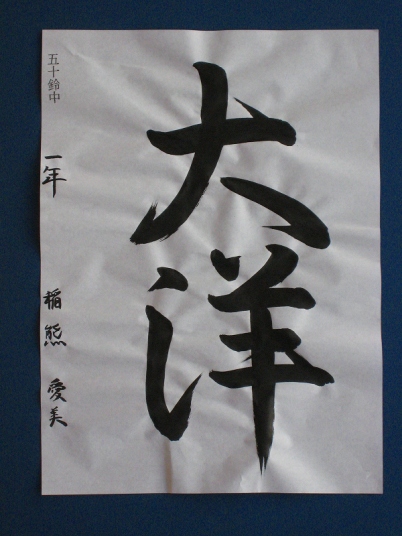 大洋
五十鈴中
一年
稲熊 愛美